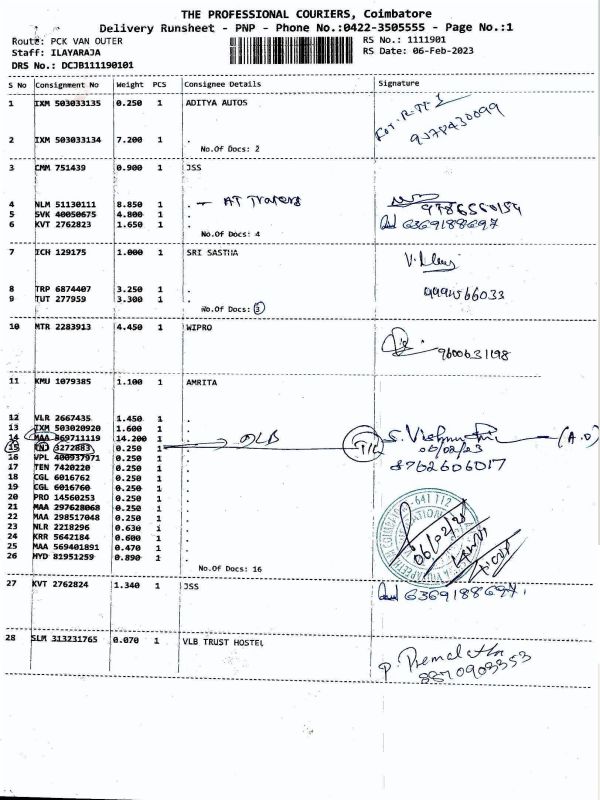 THE PROFESSIONAL COURIERS, Coimbatore
Delivery Runsheet - PNP - Phone No.:0422-3505555 - Page No.:1
Route: PCK VAN OUTER
RS No.: 1111901
Staff: ILAYARAJA
RS Date: 06-Feb-2023
DRS No.: DCJB111190101
S No Consignment No Weight PCS Consignee Details Signature
1 IXM 503033135 0.250 1 ADITYA AUTOS
2 IXM 503033134 7.200 1 .
No.Of Docs: 2
3 CMM 751439 0.900 1 JSS
4 NLM 51130111 8.850 1 . - AT
5 SVK 40050675 4.800 1 .
6 KVT 2762823 1.650 1 . 6369188697
No.Of Docs: 4
7 ICH 129175 1.000 1 SRI SASTHA
8 TRP 6874407 3.250 1 .
9 TUT 277959 3.300 1 .
No.Of Docs: 3
10 MTR 2283913 4.450 1 WIPRO
9600631198
11 KMU 1079385 1.100 1 AMRITA
12 VLR 2667435 1.450 1 .
13 IXM 503020920 1.600 1 .
14 MAA 869711119 14.200 1 . (A.O)
15 TNJ 3272883 0.250 1 . 06/02/23
16 VPL 400937971 0.250 1 . 8762606017
17 TEN 7420220 0.250 1 .
18 CGL 6016762 0.250 1 .
19 CGL 6016760 0.250 1 .
20 PRO 14560253 0.250 1 .
21 MAA 297628068 0.250 1 .
22 MAA 298517048 0.250 1 .
23 NLR 2218296 0.630 1 .
24 KRR 5642184 0.600 1 .
25 MAA 569401891 0.470 1 .
26 HYD 81951259 0.890 1 .
No.Of Docs: 16
27 KVT 2762824 1.340 1 JSS 6369188697
28 SLM 313231765 0.070 1 VLB TRUST HOSTEL
8870903353